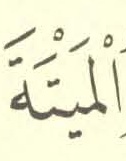 اَلْمَيْتَةَ